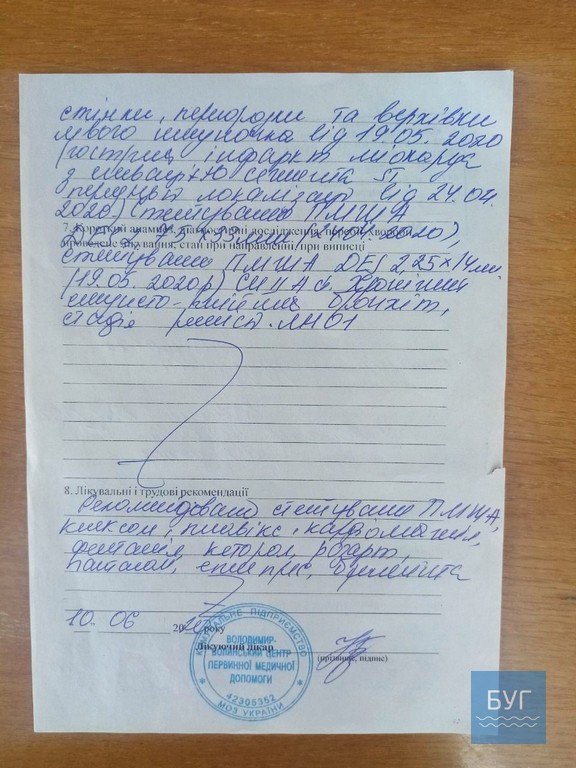 стінки, перегородки та верхівки
лівого шлуночка від 19.05. 2020
(гострий інфаркт міокарда
з елевацією сегмента ST
передньої локалізації від 24.04.
2020) Стентування ПМША
7. Короткий анамнез, діагностичні дослідження, перебіг хвороби,
проведене лікування, стан при направленні, при виписці
2020),
стентування ПМША DES 2,25 х 14 мм
(19.05. 2020р) СН ІІА ст. Хронічний
бронхіт,
стадія ремісії. ЛН 01
8. Лікувальні і трудові рекомендації
Рекомендовано стентування ПМША,
клексан, плавікс, кардіомагніл,
кеторол,
брилента
10. 06 20 20 року
Лікуючий лікар
(прізвище, підпис)
КОМУНАЛЬНЕ ПІДПРИЄМСТВО
ВОЛОДИМИР-
ВОЛИНСЬКИЙ ЦЕНТР
ПЕРВИННОЇ МЕДИЧНОЇ
ДОПОМОГИ
42305352
МОЗ УКРАЇНИ
БУГ